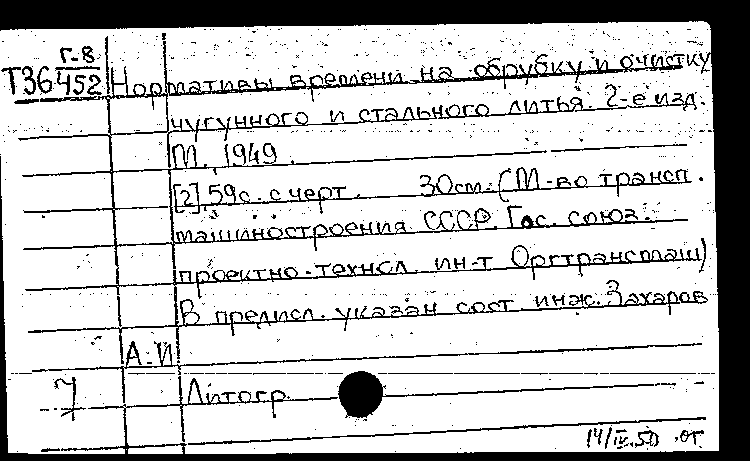 Г-8
Т36 452 Нормативы времени на обрубку и очистку
чугунного и стального литья. 2-е изд.
М., 1949.
[2], 59с. с черт. 30см. (М-во трансп.
машиностроения СССР. Гос. союз.
проектно-технол. ин-т Оргтрансмаш)
В предисл. указан сост. инж. Захаров
А.И
7 Литогр.
14/IV.50 .ог